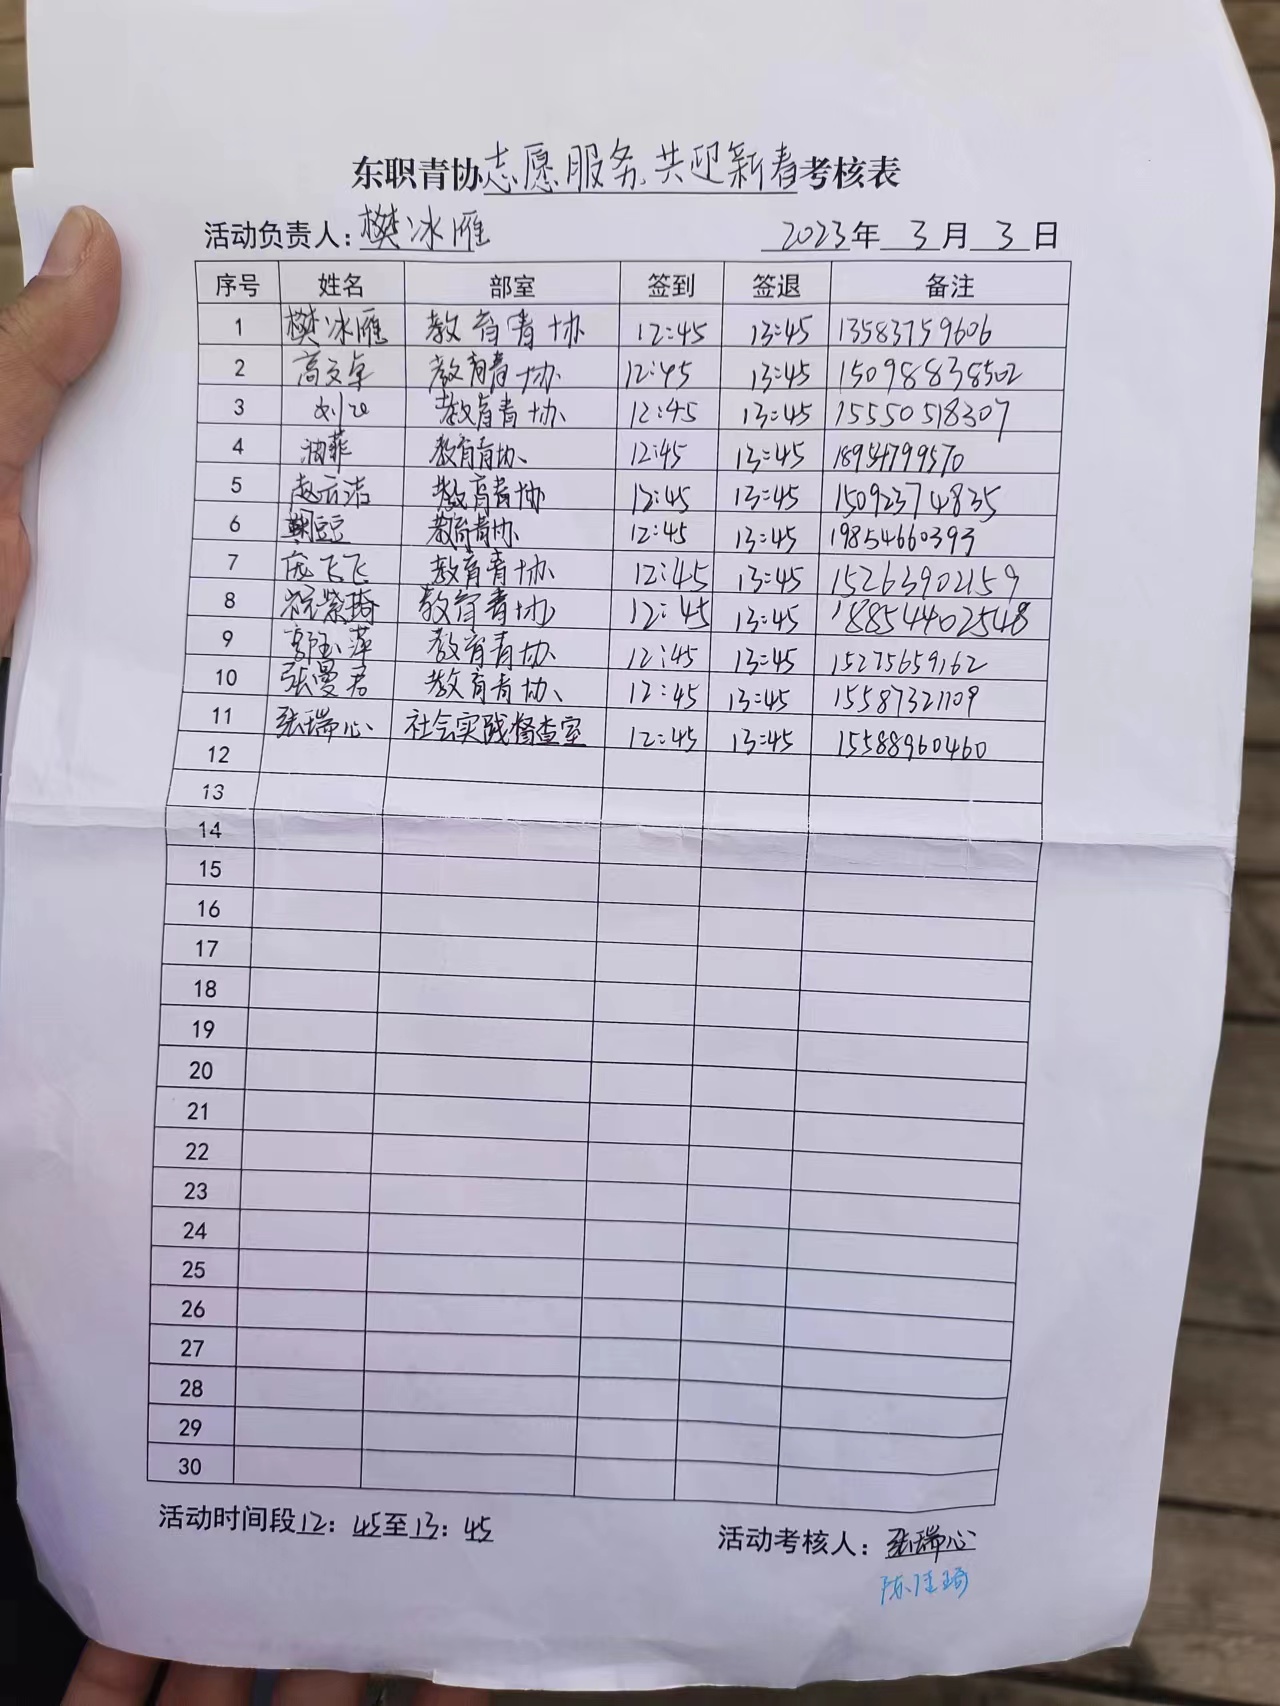 东职青协志愿服务、共迎新春考核表
活动负责人：樊冰雁 2023年 3月 3日
序号 姓名 部室 签到 签退 备注
1 樊冰雁 教育青协 12:45 13:45 13583759606
2 高文卓 教育青协 12:45 13:45 15098838502
3 教育青协 12:45 13:45 15550518307
4 教育青协、 12:45 13:45 18954799570
5 赵云洁 教育青协 12:45 13:45 15092374835
6 鞠豆豆 教育青协 12:45 13:45 19854660393
7 庞飞飞 教育青协 12:45 13:45 15263902159
8 教育青协 12:45 13:45 18854402548
9 郭玉萍 教育青协 12:45 13:45 15275659162
10 张曼君 教育青协、 12:45 13:45 15587321109
11 张瑞心 社会实践督查室 12:45 13:45 15588960460
12
13
14
15
16
17
18
19
20
21
22
23
24
25
26
27
28
29
30
活动时间段12：45至13：45 活动考核人：张瑞心
陈佳琦